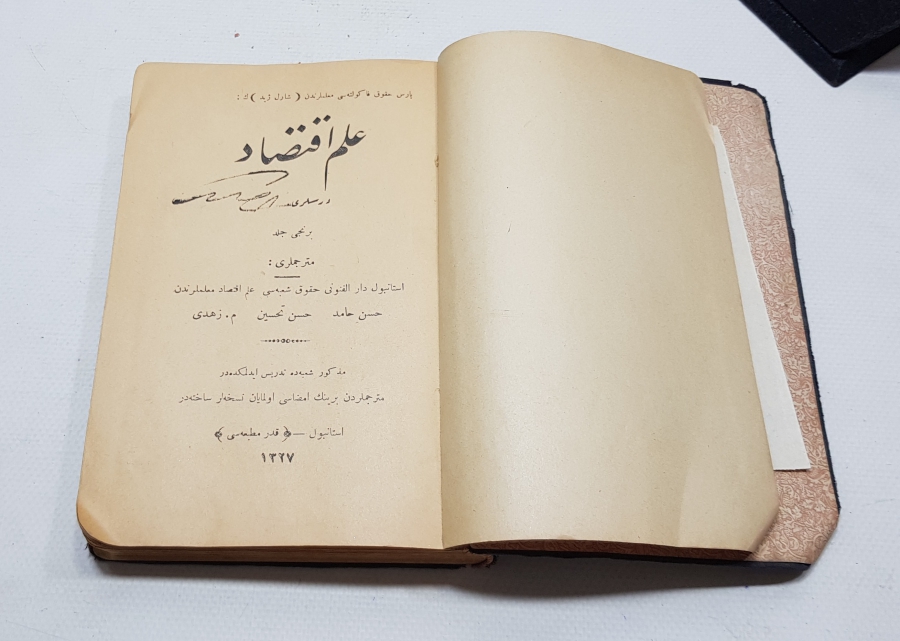 پارس حقوق فاكولته‌سی معلملرندن ( شارل ژید ) ك :
علم اقتصاد
درسلری
برنجی جلد
مترجملری :
استانبول دار الفنونی حقوق شعبه‌سی علم اقتصاد معلملرندن
حسن حامد حسن تحسین م . زهدی
مذكور شعبه‌ده تدریس ایدلمكده‌در
مترجملردن برینك امضاسی اولمایان نسخه‌لر ساخته‌در
استانبول — ﴿ قدر مطبعه‌سی ﴾
۱۳۲۷